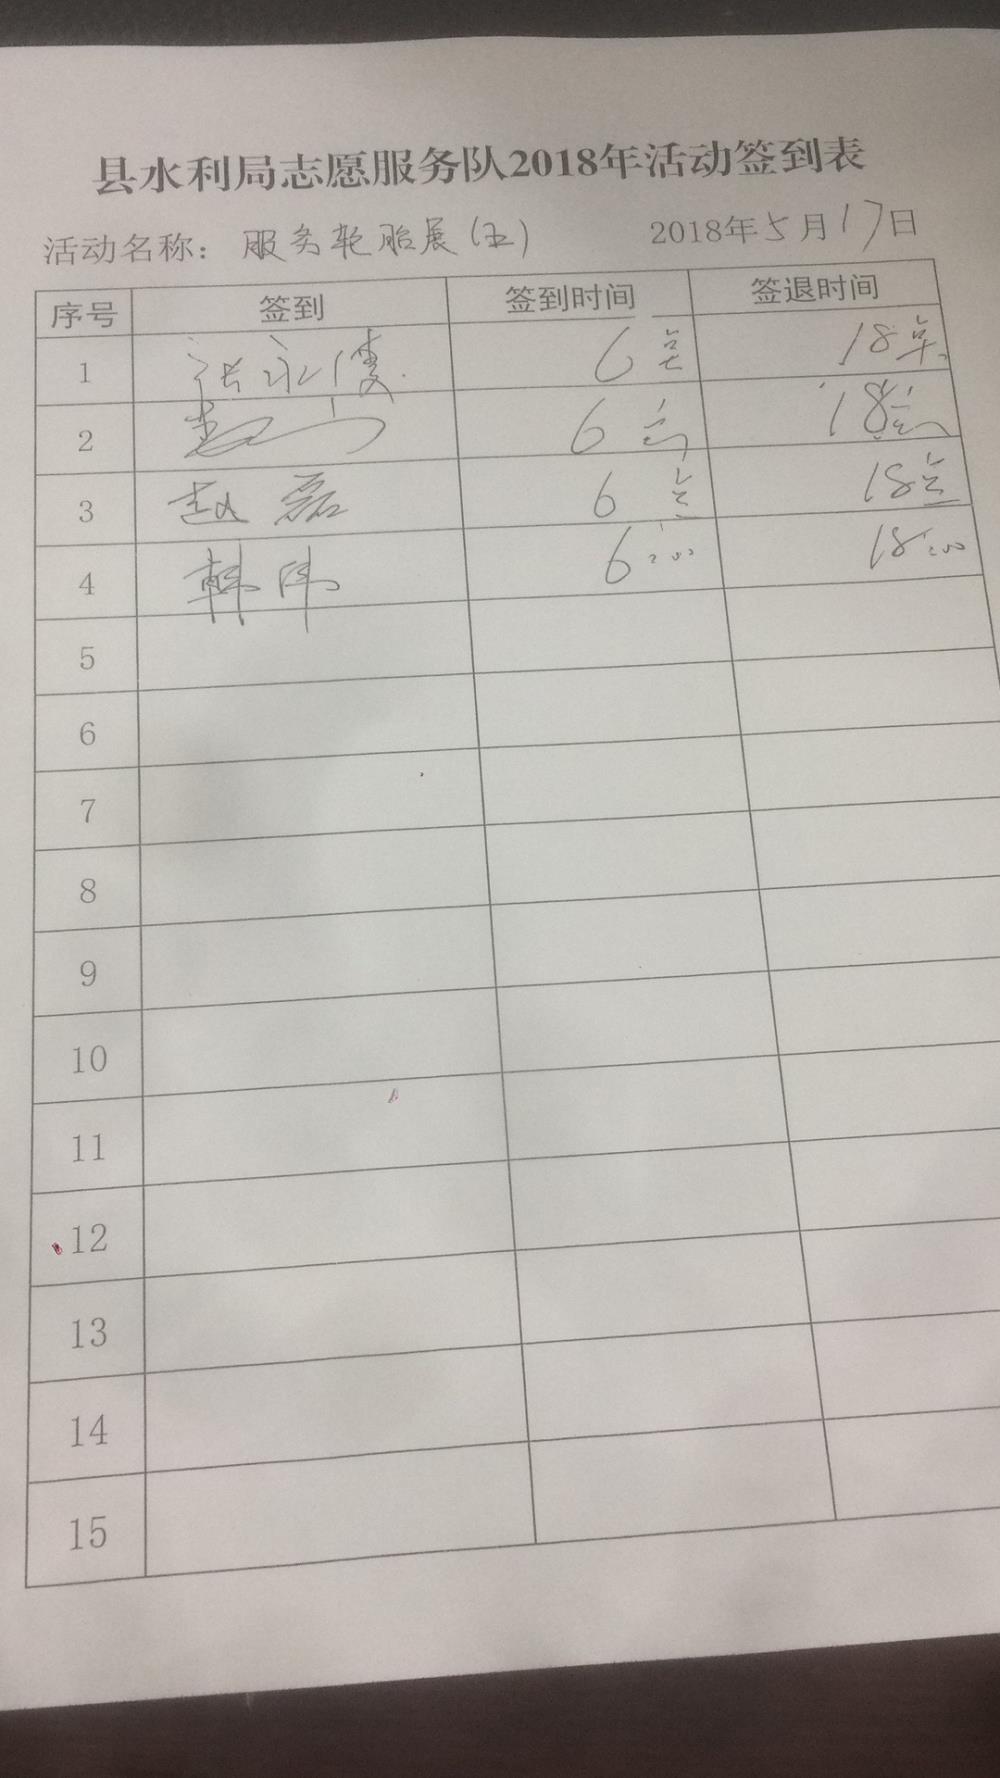 县水利局志愿服务队2018年活动签到表
活动名称：服务轮胎展（五） 2018年5月17日
序号 签到 签到时间 签退时间
1 张永 6点 18点
2 6点 18点
3 赵磊 6点 18点
4 韩伟 6:00 18:00
5
6
7
8
9
10
11
12
13
14
15